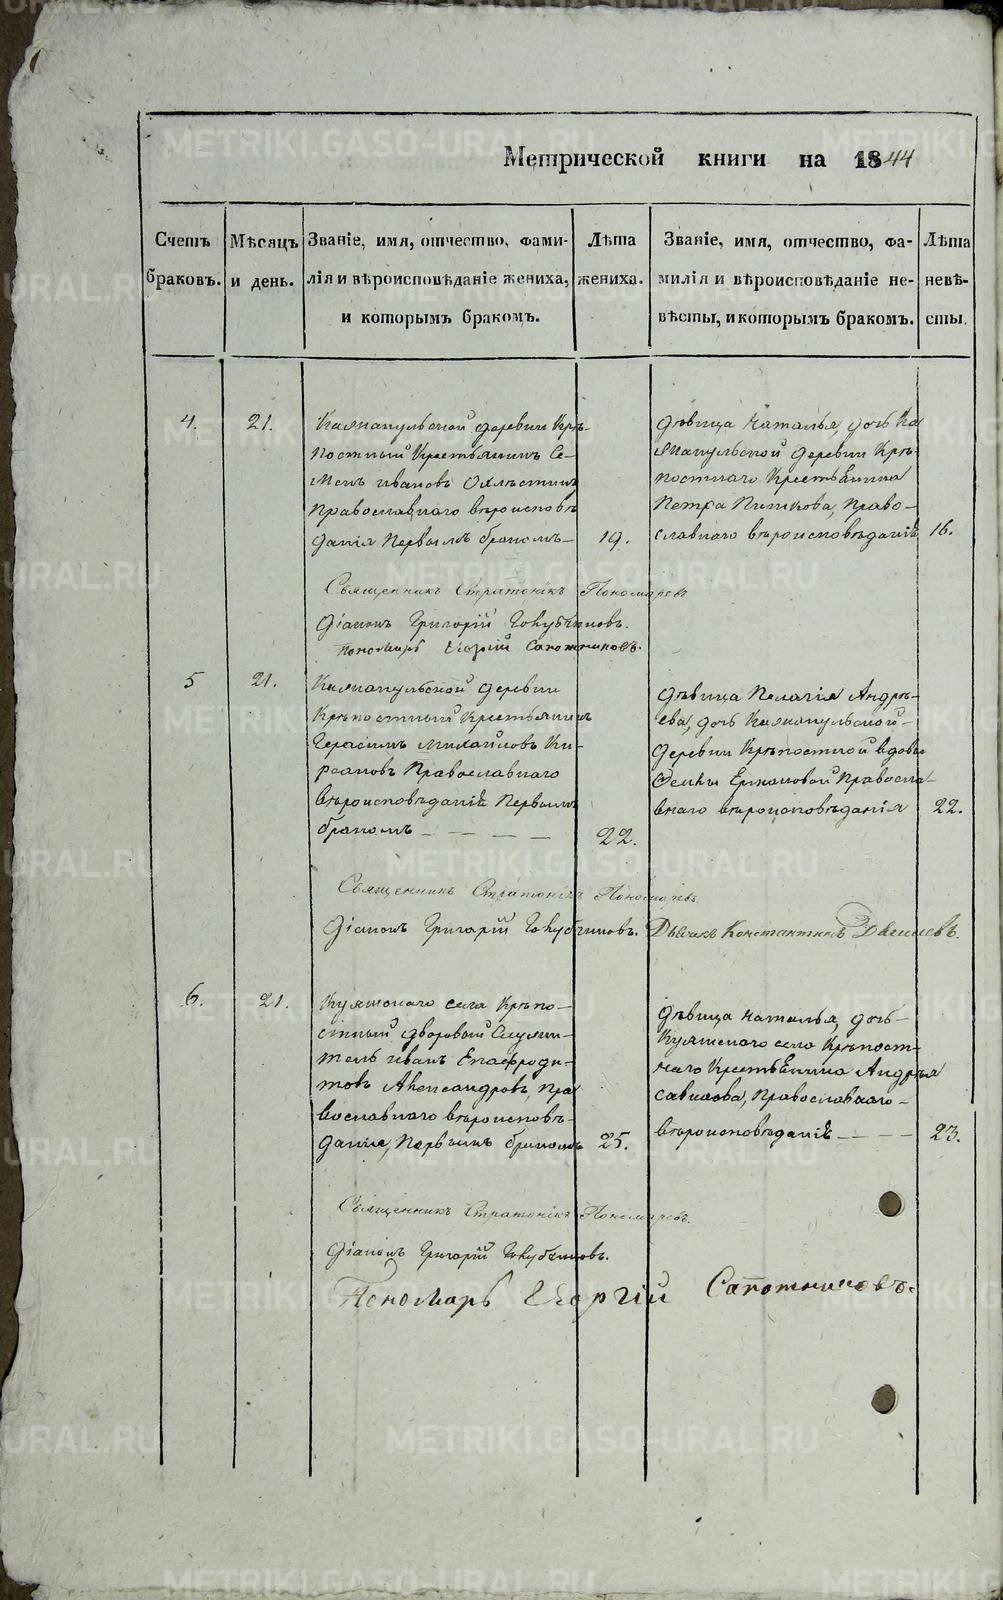 Метрической книги на 1844
Счетъ браковъ.
Мѣсяцъ и день.
Званіе, имя, отчество, фами-
лія и вѣроисповѣданіе жениха,
и которымъ бракомъ.
Лѣта жениха.
Званіе, имя, отчество, фа-
милія и вѣроисповѣданіе не-
вѣсты, и которымъ бракомъ.
Лѣта невѣ-
сты.
4.
21.
деревни Крѣ-
постный Крестьянинъ Се-
менъ Ивановъ
Православнаго вѣроисповѣ
данія Первымъ бракомъ
19.
Дѣвица Наталья, дочь Ка
деревни Крѣ-
постнаго Крестьянина
Петра Пишкова, Право-
славнаго вѣроисповѣданія
16.
Священникъ Стратоникъ Пономаревъ
Діаконъ Григорій Голубчиковъ.
Пономарь Георгій Сапожниковъ.
5
21.
деревни
Крѣпостный Крестьянинъ
Герасимъ Михайловъ Ки-
рсановъ Православнаго
вѣроисповѣданія Первымъ
бракомъ — — — —
22.
Дѣвица Пелагія Андрѣ-
ева, дочь
деревни Крѣпостной вдовы
Ермаковой Правосла-
внаго вѣроисповѣданія
22.
Священникъ Стратоникъ Пономаревъ.
Діаконъ Григорій Голубчиковъ. Дьячекъ Константинъ
6.
21.
Куяшскаго села Крѣпо-
стный дворовый Служи-
тель Иванъ Епафроди-
товъ Александровъ, Пра
вославнаго вѣроисповѣ-
данія, Первымъ бракомъ
25.
Дѣвица Наталья, дочь
Куяшскаго села Крѣпост-
наго Крестьянина Андрея
Савинова, Православнаго
вѣроисповѣданія — — —
23.
Священникъ Стратоникъ Пономаревъ.
Діаконъ Григорій Голубчиковъ.
Пономарь Георгій Сапожниковъ.
METRIKI.GASO-URAL.RU